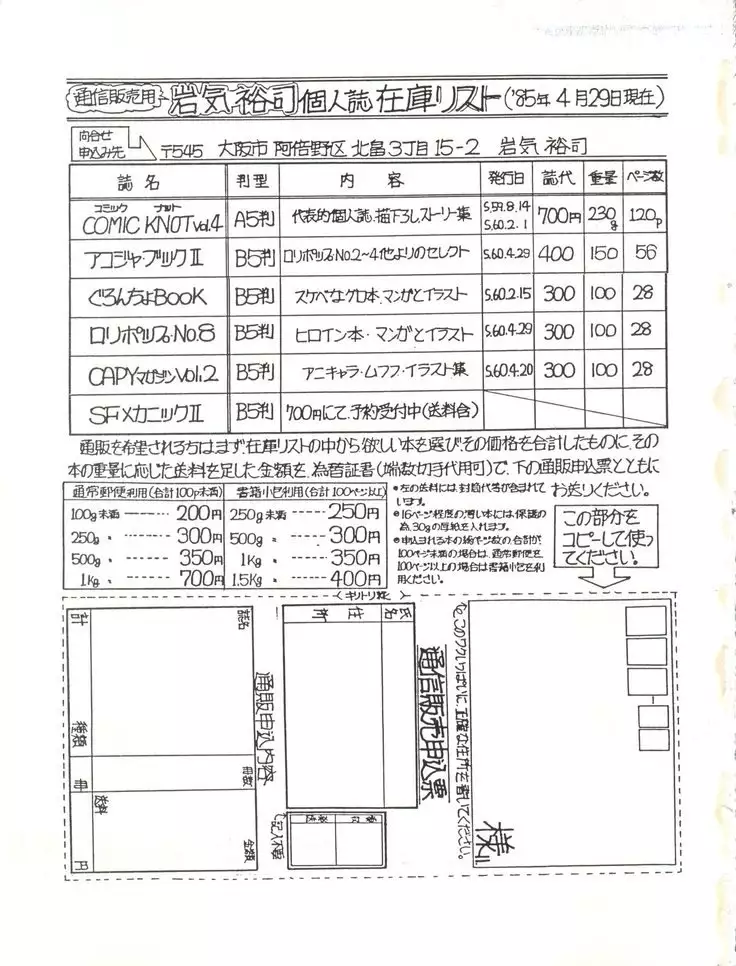 通信販売用 岩気裕司個人誌在庫リスト('85年4月29日現在)
問合せ
申込み先
〒545 大阪市阿倍野区北畠3丁目15-2 岩気裕司
誌名 判型 内容 発行日 誌代 重量 ページ数
コミック ナット
COMIC KNOT vol.4 A5判 代表的個人誌、描下ろしストーリー集 S.59.8.14 S.60.2.1 700円 230g 120p
アコジャ・ブックⅡ B5判 ロリポップスNo.2〜4他よりのセレクト S.60.4.29 400 150 56
ぐろんちょBOOK B5判 スケベなグロ本、マンガとイラスト S.60.2.15 300 100 28
ロリポップス・No.8 B5判 ヒロイン本・マンガとイラスト S.60.4.29 300 100 28
CAPYマガジンVol.2 B5判 アニキャラ・ムフフ・イラスト集 S.60.4.20 300 100 28
SFメカニックⅡ B5判 700円にて、予約受付中(送料含)
通販を希望される方はまず、在庫リストの中から欲しい本を選び、その価格を合計したものに、その
本の重量に応じた送料を足した金額を、為替証書(端数切手代用可)で、下の通販申込票とともに
お送りください。
通常郵便利用(合計100p未満)
100g未満 ------ 200円
250g 〃 ------ 300円
500g 〃 ------ 350円
1kg 〃 ------ 700円
書籍小包利用(合計100ページ以上)
250g未満 ----- 250円
500g 〃 ----- 300円
1kg 〃 ----- 350円
1.5kg 〃 ----- 400円
●左の送料には、封筒代等が含まれて
います。
●16ページ程度の薄い本には、保護の
為、30gの厚紙を入れます。
●申込まれる本の総ページ数の合計が、
100ページ未満の場合は、通常郵便を、
100ページ以上の場合は書籍小包を利
用ください。
この部分を
コピーして使っ
てください。
キリトリ線
このワクいっぱいに、正確な住所を書いてください。
様
通信販売申込票
氏名
住所
記入不要
通販申込内容
誌名
冊数
金額
計
種類
冊
送料
円